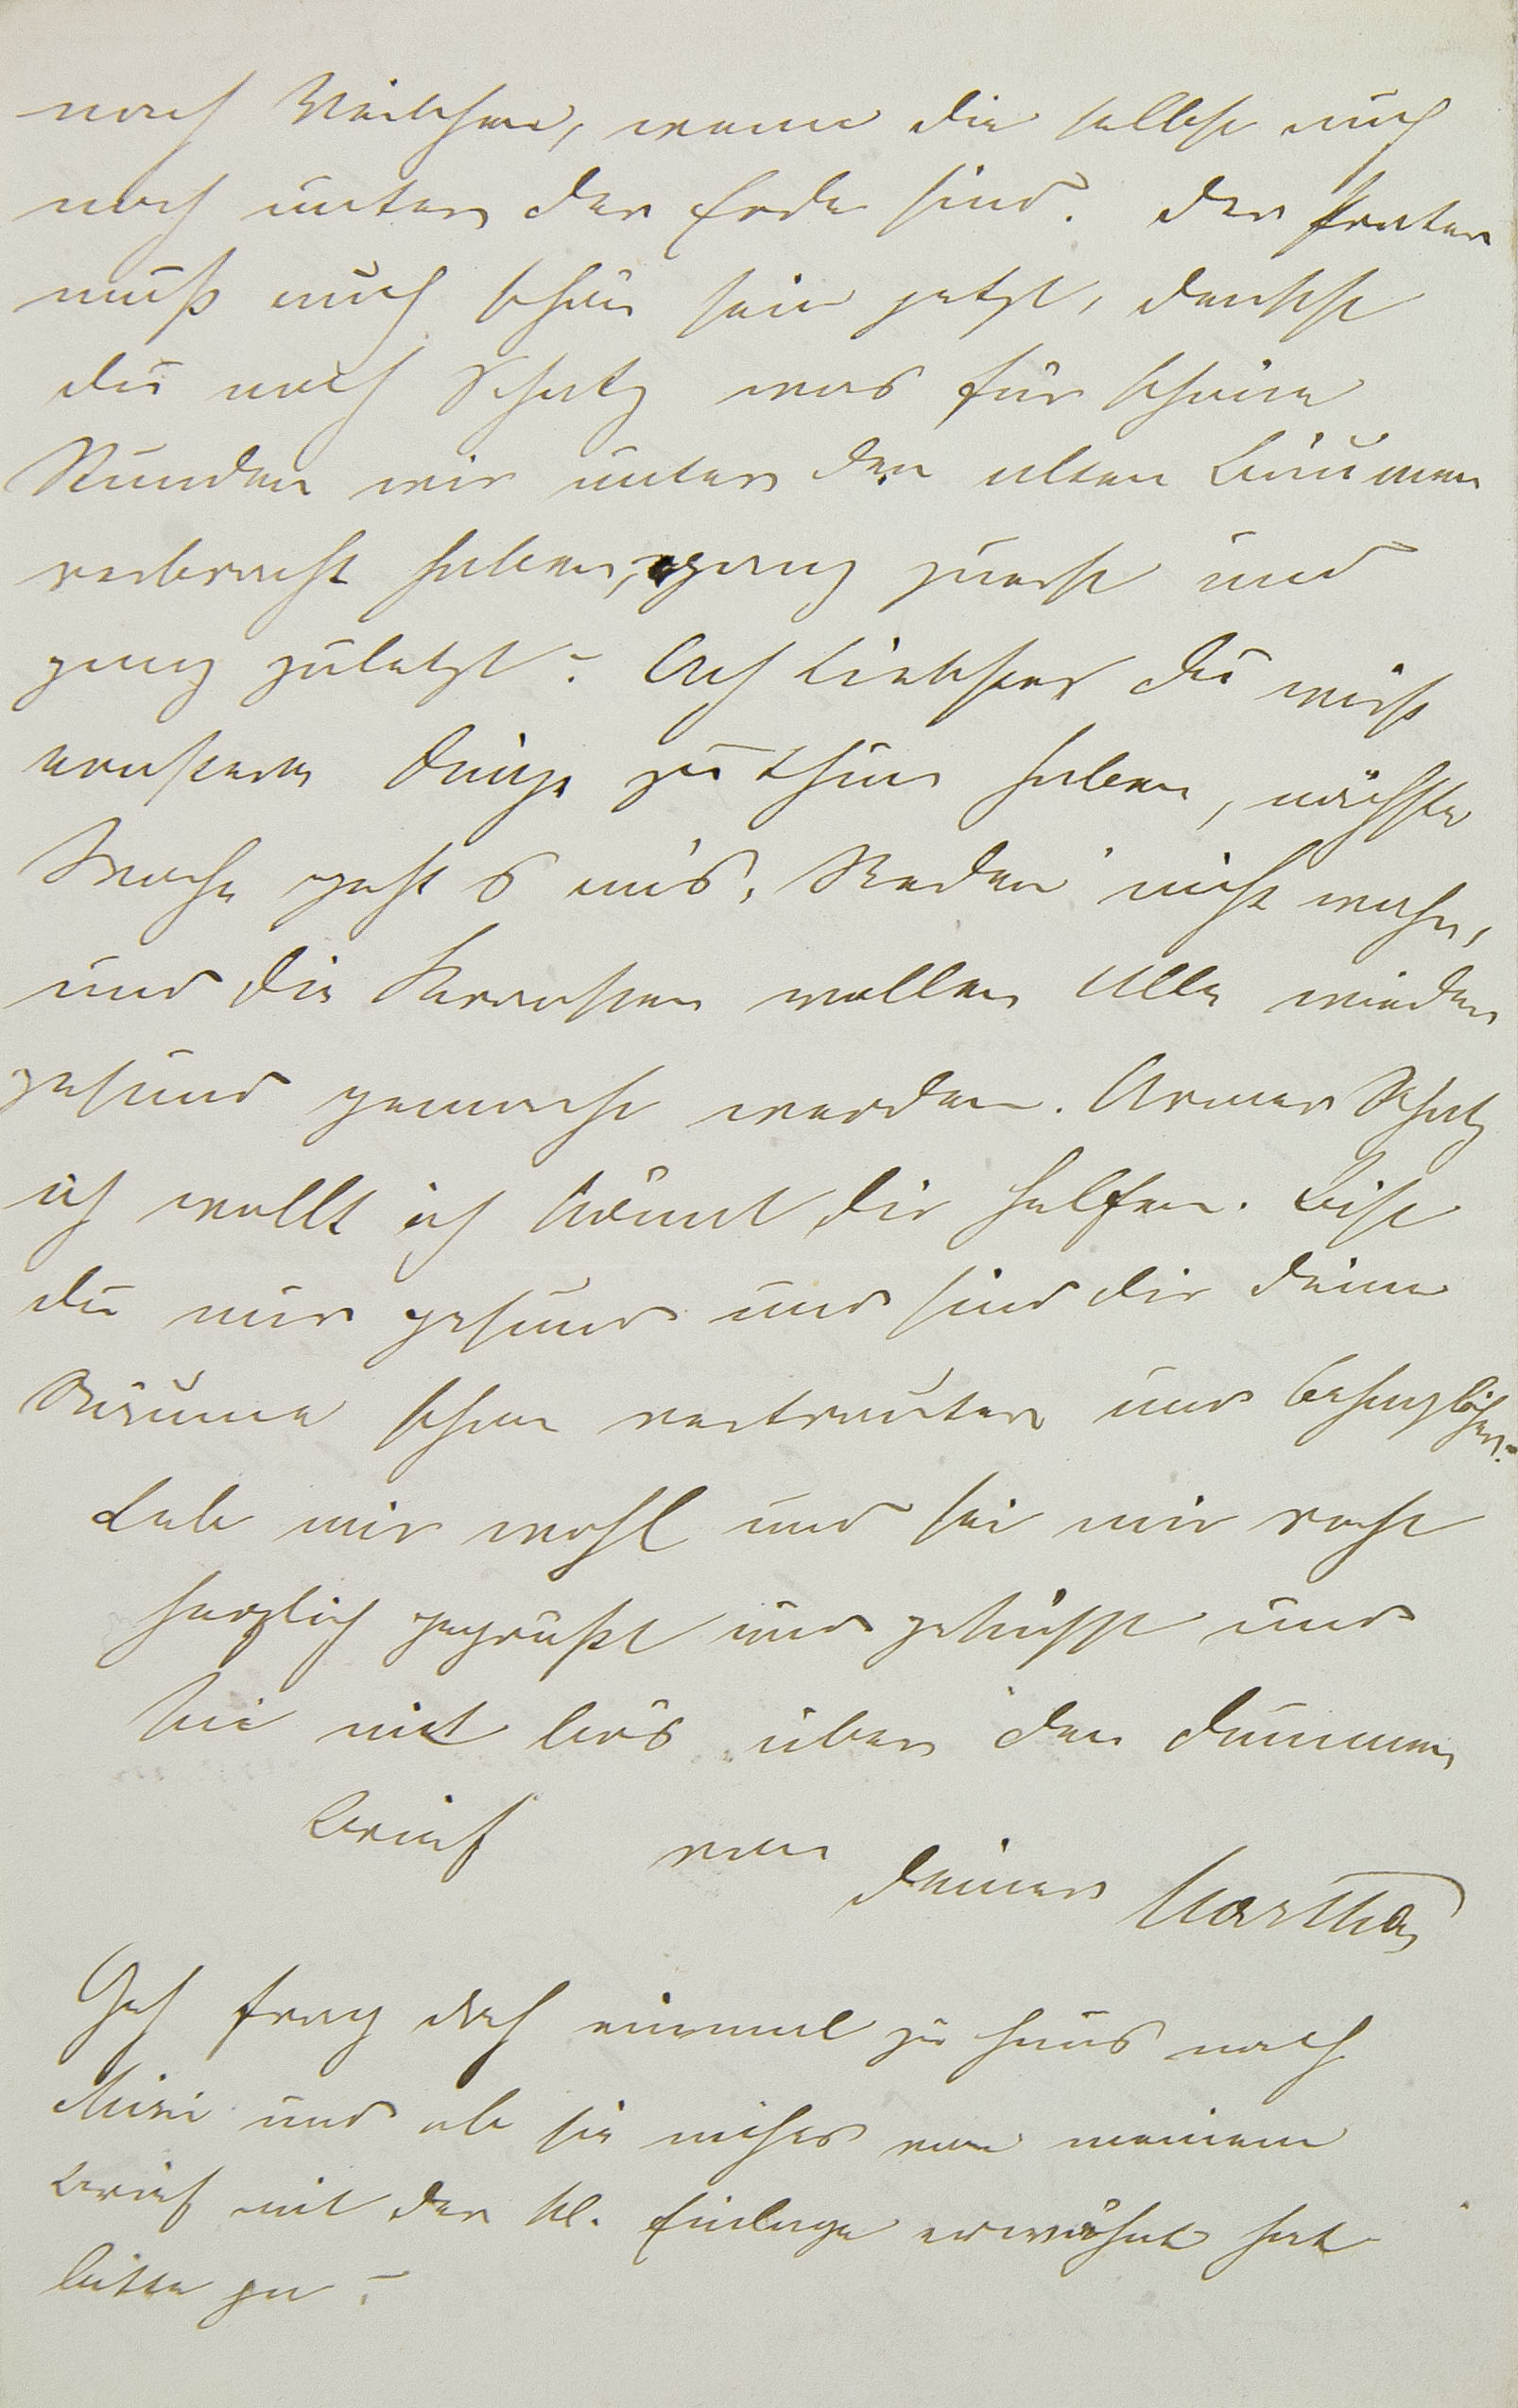 nach Veilchen, wenn die selbst auch
noch unter der Erde sind. Der Prater
muß auch schön sein jetzt, denkst
du noch Schatz was für schöne
Stunden wir unter den alten Bäumen
verbracht haben, ganz zuerst und
ganz zuletzt? Ach Liebster du wirst
ernstere Dinge zu thun haben, nächste
Woche geht's an's Reden nicht wahr,
und die Kranken wollen Alle wieder
gesund gemacht werden. Armer Schatz
ich wollt ich könnt dir helfen. Bist
du nur gesund und sind dir deine
Räume schon vertrauter und behaglicher?
Leb mir wohl und sei mir recht
herzlich gegrüßt und geküßt und
sei nit bös über den dummen
Brief von deiner Martha
Geh frag doch einmal zu Haus nach
Mini und ob sie nichts von meinem
Brief mit der kl. Einlage erwähnt hat
bitte ja?